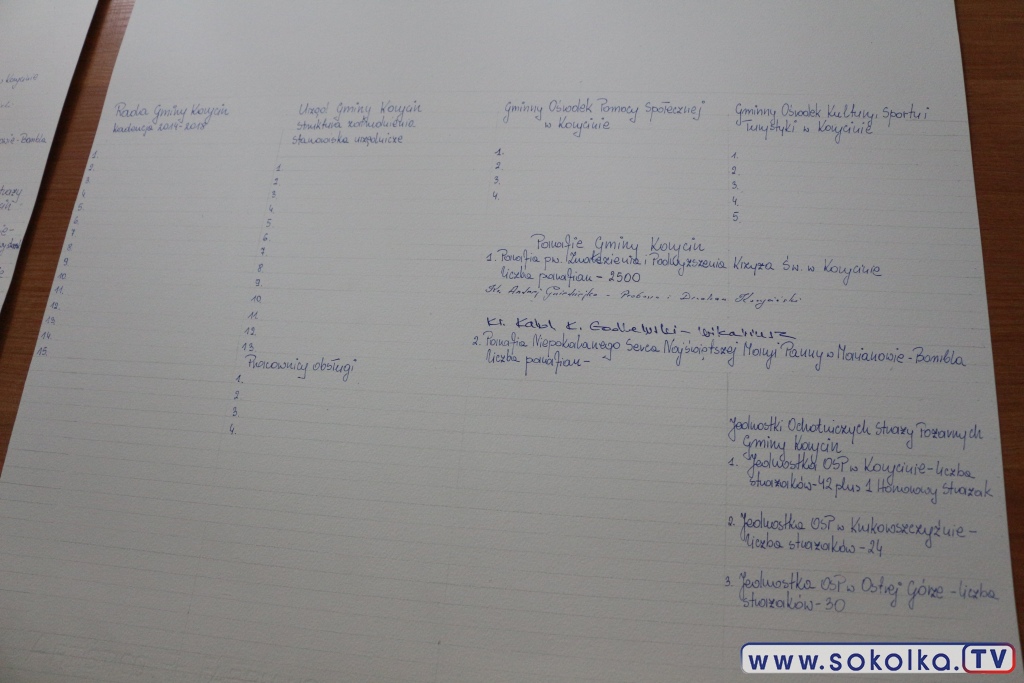 Rada Gminy Korycin
kadencja 2014-2018
1.
2.
3.
4.
5.
6.
7.
8.
9.
10.
11.
12.
13.
14.
15.
Urząd Gminy Korycin
struktura zatrudnienia
stanowiska urzędnicze
1.
2.
3.
4.
5.
6.
7.
8.
9.
10.
11.
12.
13.
Pracownicy obsługi
1.
2.
3.
4.
Gminny Ośrodek Pomocy Społecznej
w Korycinie
1.
2.
3.
4.
Gminny Ośrodek Kultury, Sportu i
Turystyki w Korycinie
1.
2.
3.
4.
5.
Parafie Gminy Korycin
1. Parafia pw. Znalezienia i Podwyższenia Krzyża Św. w Korycinie
liczba parafian - 2500
Ks. Andrzej - Proboszcz i Dziekan
Ks. Karol K. Godlewski - wikariusz
2. Parafia Niepokalanego Serca Najświętszej Maryi Panny w Marianowie-Bombla
liczba parafian -
Jednostki Ochotniczych Straży Pożarnych
Gminy Korycin
1. Jednostka OSP w Korycinie - liczba
strażaków - 42 plus 1 Honorowy Strażak
2. Jednostka OSP w Kumiałowszczyźnie -
liczba strażaków - 24
3. Jednostka OSP w Ostrej Górze - liczba
strażaków - 30
www.sokolka.TV